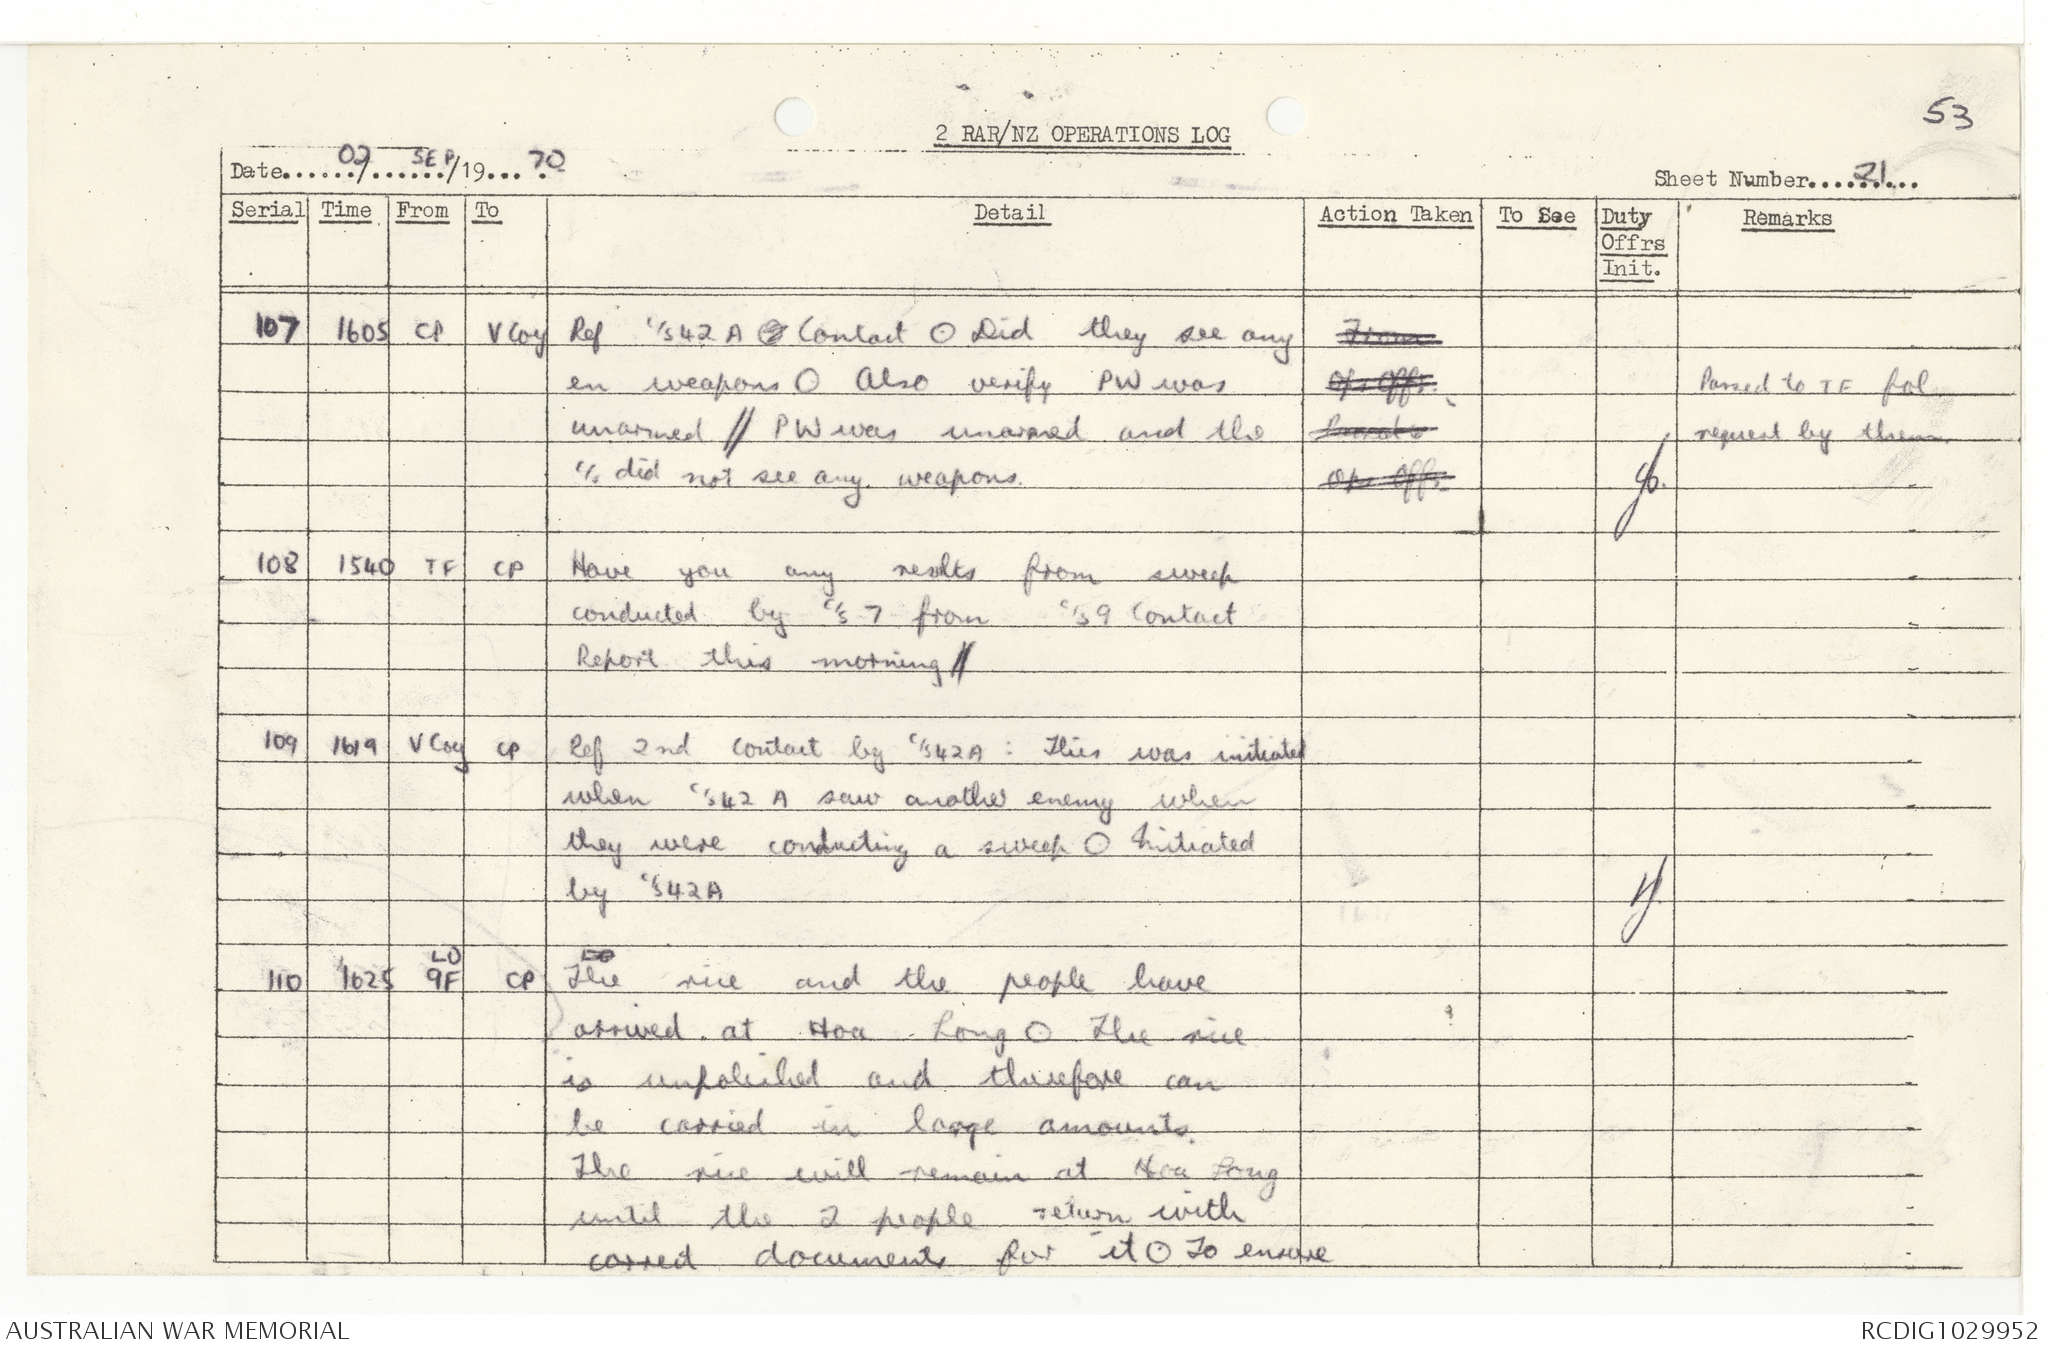 53
2 RAR/NZ OPERATIONS LOG
Date......02/SEP/19...70
Sheet Number....21....
Serial Time From To Detail Action Taken To See Duty Offrs Init. Remarks
107 1605 CP V Coy Ref C/S 42A Contact O Did they see any
en weapons O Also verify PW was Ops Offr. Passed to TF fol
unarmed // PW was unarmed and the request by them
C/S did not see any weapons. Ops Offr.
108 1540 TF CP Have you any results from sweep
conducted by C/S 7 from C/S 9 Contact
Report this morning //
109 1619 V Coy CP Ref 2nd Contact by C/S 42A : This was initiated
when C/S 42A saw another enemy when
they were conducting a sweep O Initiated
by C/S 42A
110 1625 LO 9F CP The rice and the people have
arrived at Hoa Long O The rice
is unpolished and therefore can
be carried in large amounts.
The rice will remain at Hoa Long
until the 2 people return with
corred documents for it O To ensure
AUSTRALIAN WAR MEMORIAL
RCDIG1029952